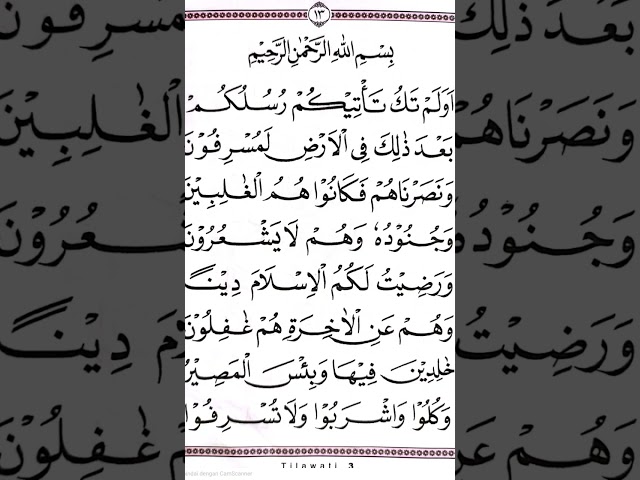 ١٣
بِسْمِ اللهِ الرَّحْمٰنِ الرَّحِيْمِ
اَوَلَمْ تَكُ تَأْتِيْكُمْ رُسُلُكُمْ
بَعْدَ ذٰلِكَ فِى الْاَرْضِ لَمُسْرِفُوْنَ
وَنَصَرْنَاهُمْ فَكَانُوْا هُمُ الْغٰلِبِيْنَ
وَجُنُوْدُهٗ وَهُمْ لَا يَشْعُرُوْنَ
وَرَضِيْتُ لَكُمُ الْاِسْلَامَ دِيْنًا
وَهُمْ عَنِ الْاٰخِرَةِ هُمْ غٰفِلُوْنَ
خٰلِدِيْنَ فِيْهَا وَبِئْسَ الْمَصِيْرُ
وَكُلُوْا وَاشْرَبُوْا وَلَا تُسْرِفُوْا
Tilawati 3
dengan CamScanner